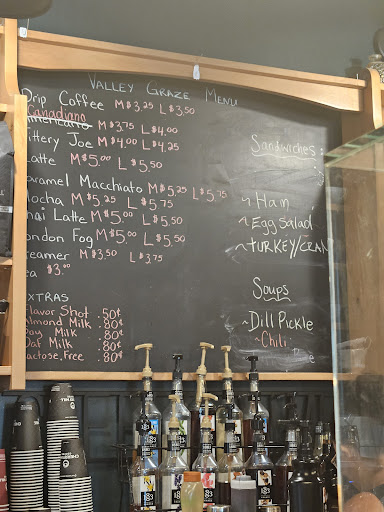 VALLEY GRAZE MENU
Drip Coffee M$3.25 L$3.50
Canadiano
Americano M$3.75 L$4.00
ittery Joe M$4.00 L$4.25
Latte M$5.00 L$5.50
aramel Macchiato M$5.25 L$5.75
Mocha M$5.25 L$5.75
hai Latte M$5.00 L$5.50
ondon Fog M$5.00 L$5.50
teamer M$3.50 L$3.75
ea $3.00
EXTRAS
Flavor Shot .50¢
Almond Milk .80¢
Soy Milk .80¢
Oat Milk .80¢
Lactose Free .80¢
Sandwiches:
~ Ham
~ Egg Salad
~ TURKEY/CRAN
Soups
~ Dill Pickle
~ Chili